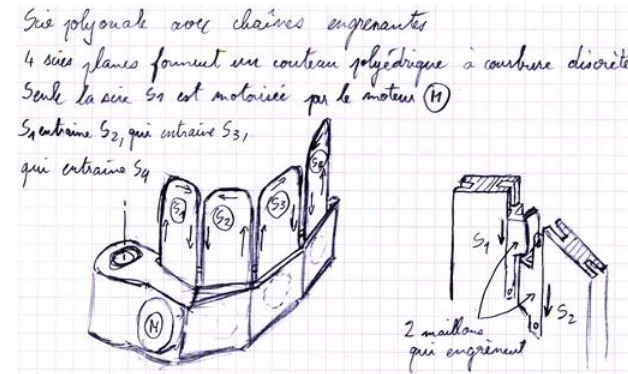 Scie polygonale avec chaînes engrenantes
4 scies planes forment un couteau polyédrique à courbure discrète
Seule la scie S1 est motorisée par le moteur M
S1 entraine S2, qui entraine S3,
qui entraine S4
S1
S2
S3
S4
M
S1
S2
2 maillons
qui engrènent